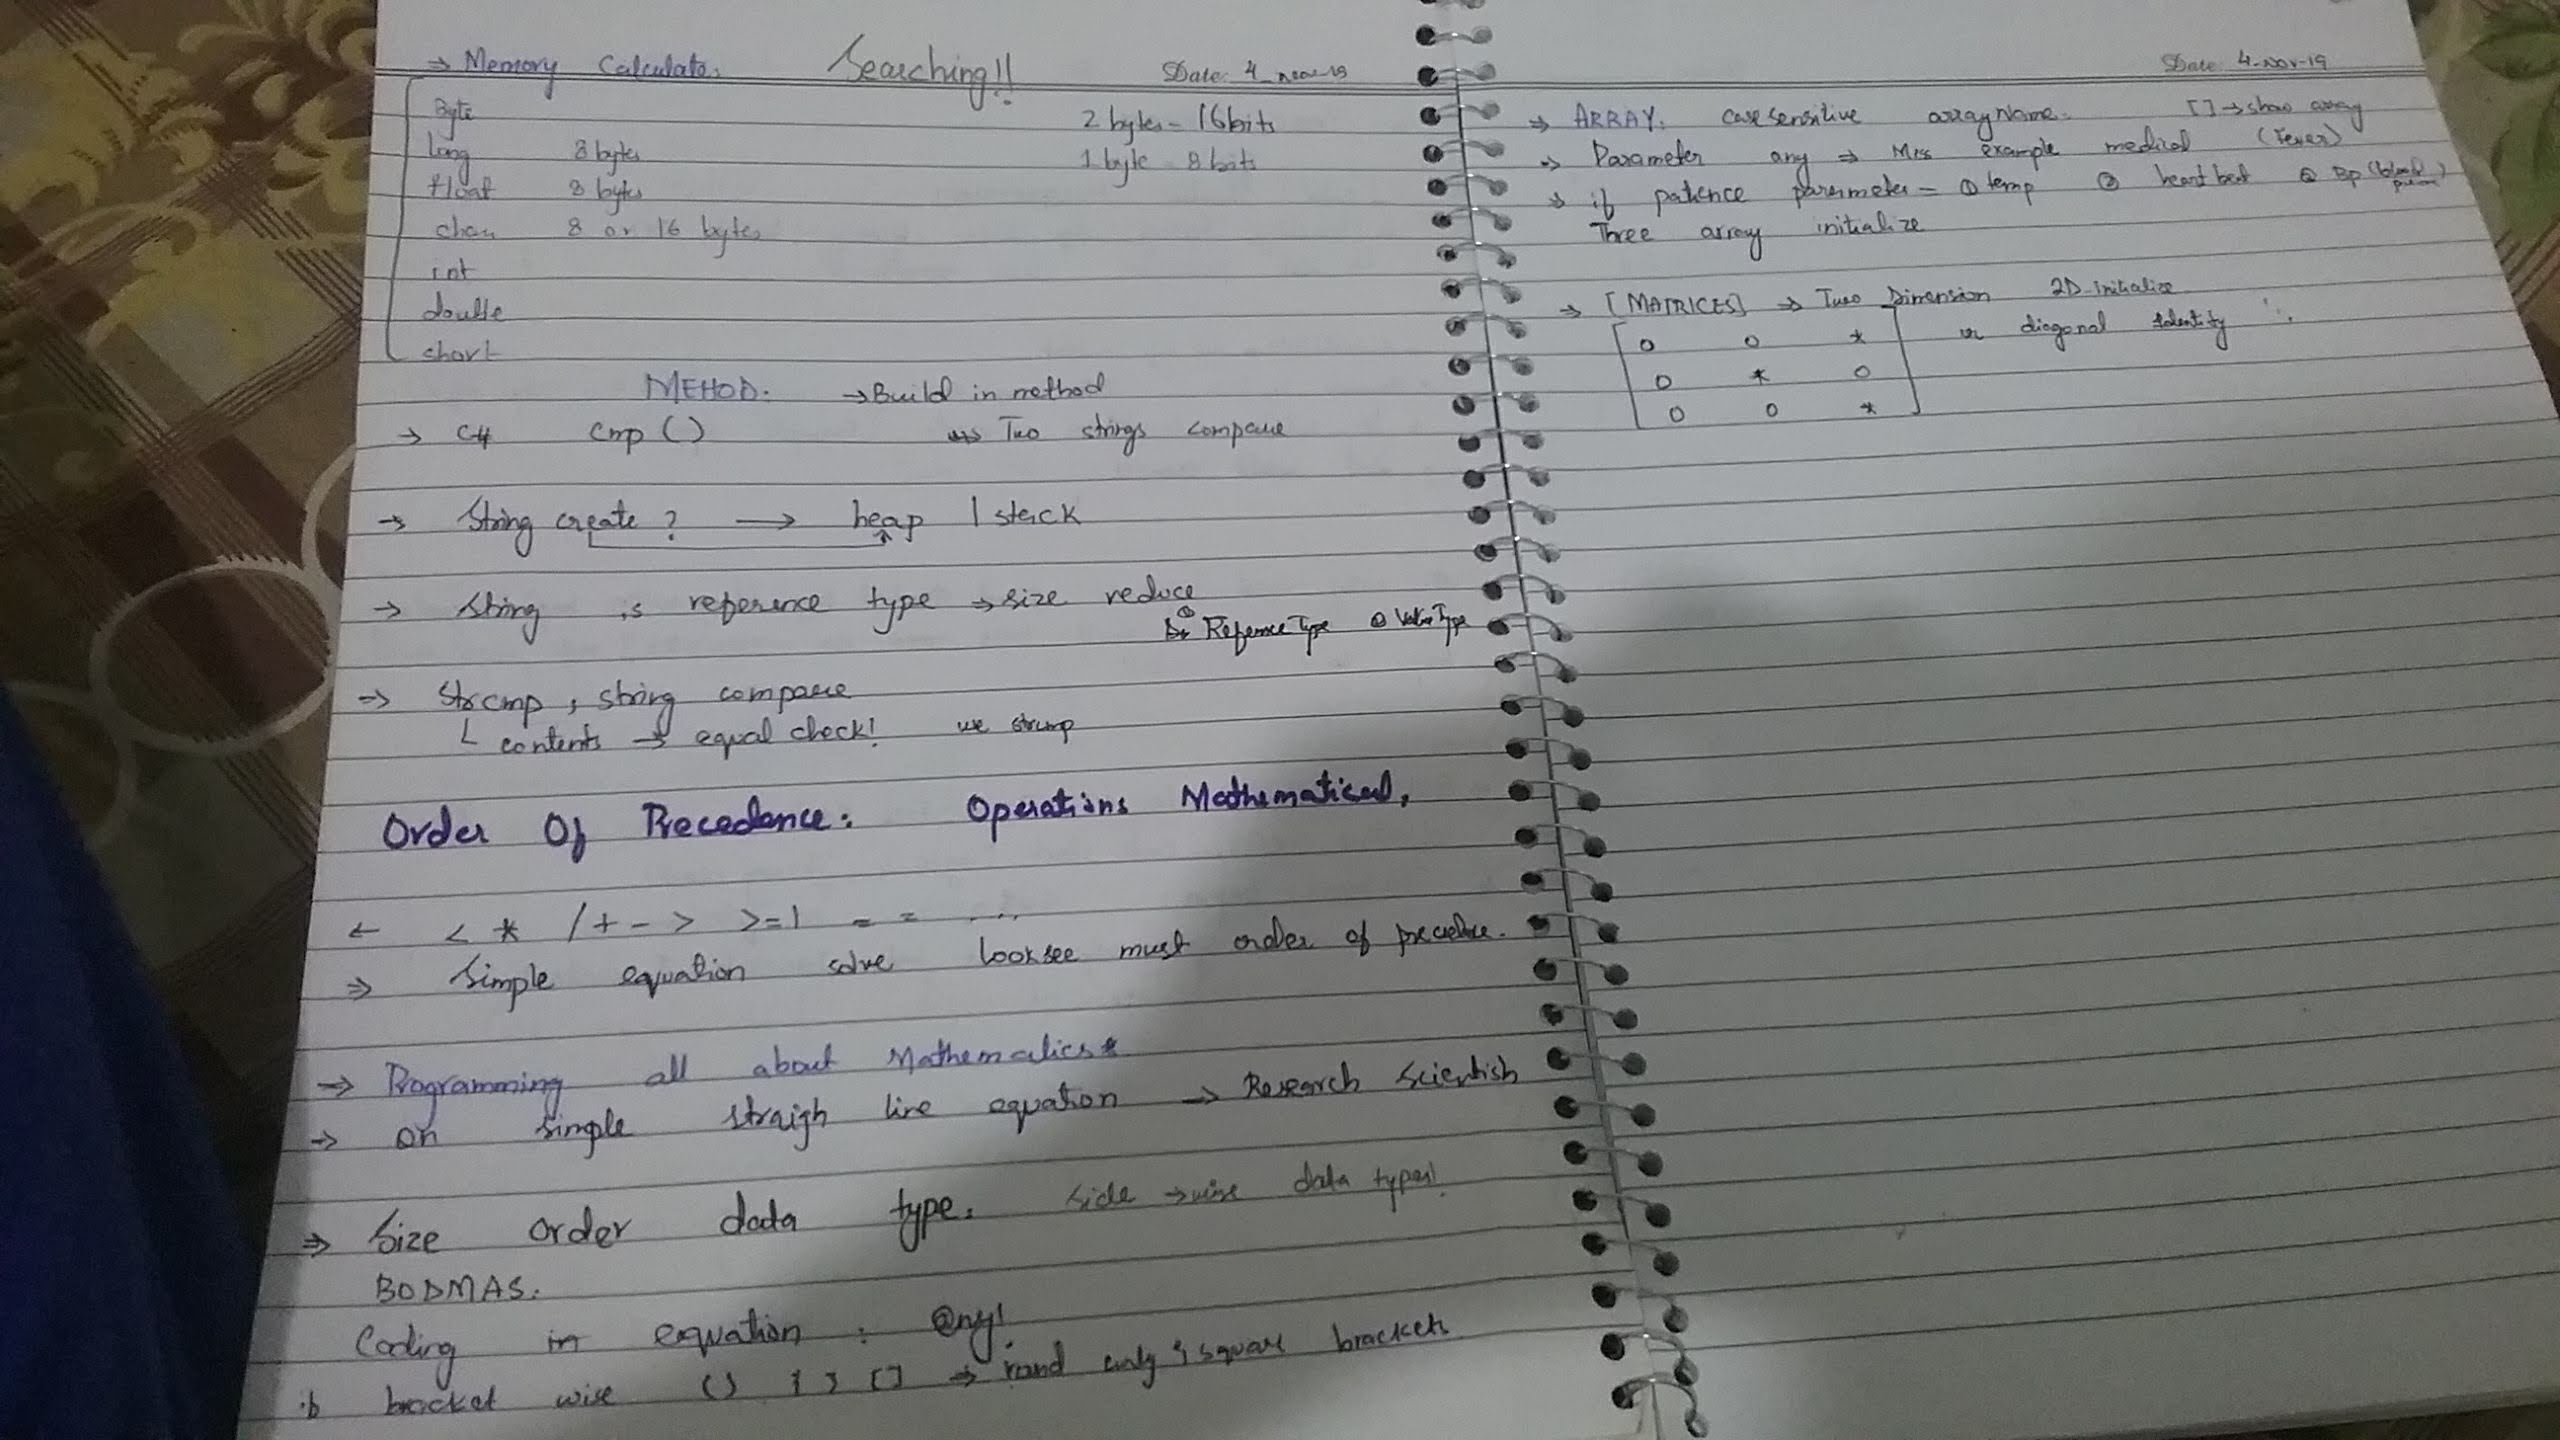 → Memory Calculate. Searching!! Date: 4-nov-19
Byte 2 bytes - 16 bits
long 8 bytes 1 byte 8 bits
float 8 bytes
char 8 or 16 bytes
int
double
short
MEHOD. → Build in method
→ C# Cmp () Two strings compare
→ String create ? → heap | stack
→ String is reference type → size reduce
① Reference Type ② Value Type
→ Strcmp, string compare
contents → equal check!
Order Of Precedance: Operations Mathematical.
← < * / + - > >=1 = = ...
⇒ Simple equation solve look see must order of
⇒ Programming all about Mathematics*
→ on simple straigh line equation → Research Scientish
⇒ Size order data type. side → wise data types!
BODMAS.
Coding in equation : @ny!
bracket wise () { } [] → square brackets
Date: 4-Nov-19
⇒ ARRAY. casesensitive arrayName. [] → show array
⇒ Parameter any ⇒ Miss example medical (fever)
⇒ if patience parameter - ① temp ② heart beat ③ Bp
Three array initialize
→ [MATRICES] → Two Dimension 2D-initialize
0 0 * diagonal identity
0 * 0
0 0 *